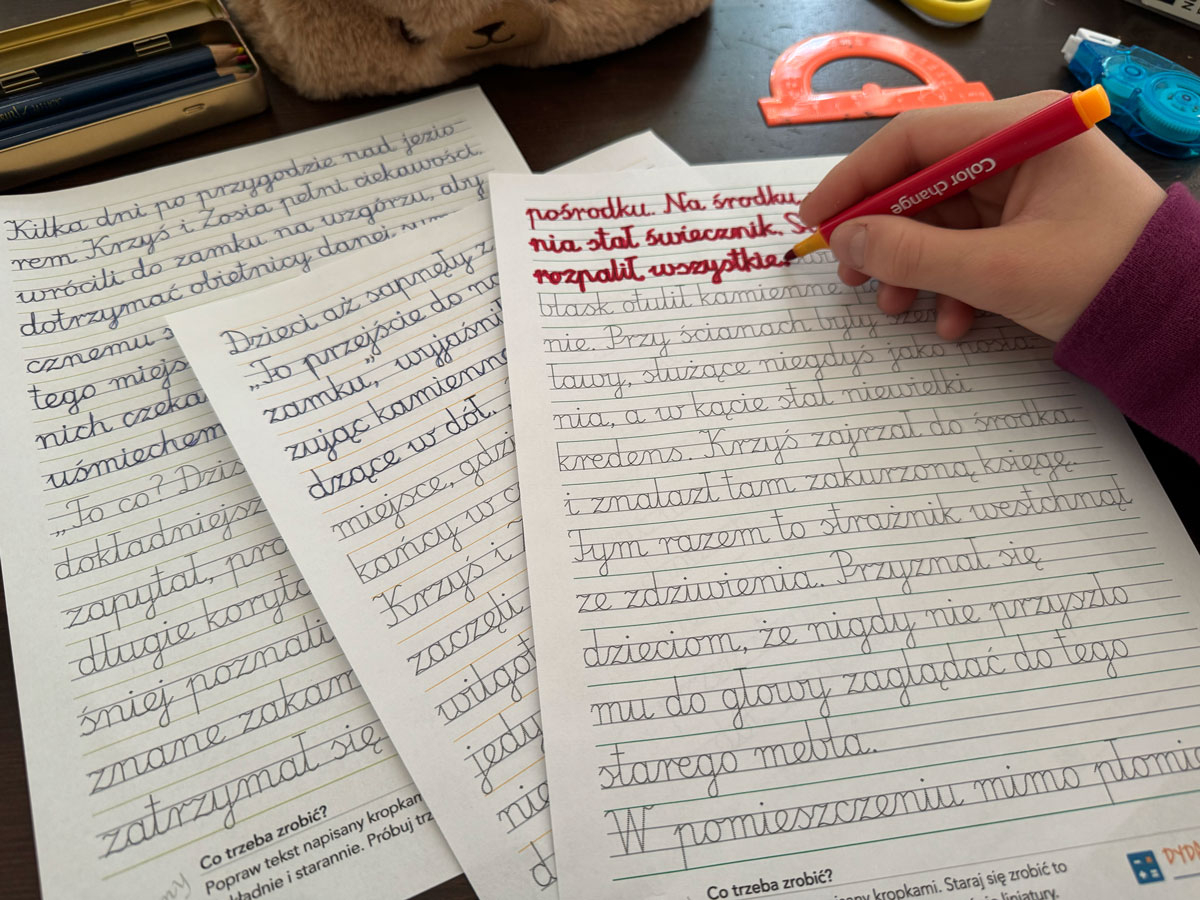 Kilka dni po przygodzie nad jezio
rem Krzyś i Zosia pełni ciekawości
wrócili do zamku na wzgórzu, aby
dotrzymać obietnicy danej
cznemu
tego miejs
nich czeka
uśmiechem
„To co? Dziś
dokładniejsz
zapytał, pro
długie koryta
śniej poznali
znane zakam
zatrzymał się
Co trzeba zrobić?
Popraw tekst napisany kropkam
kładnie i starannie. Próbuj trz
Dzieci aż sapnęły z
„To przejście do
zamku,” wyjaśni
zując kamienne
dzące w dół.
miejsce, gdzi
kańcy w c
Krzyś i
zaczęli
wilgot
jedy
nie
d
pośrodku. Na środku
nia stał świecznik. S
rozpalił wszystkie
blask otulił kamienne
nie. Przy ścianach były
ławy, służące niegdyś jako posła
nia, a w kącie stał niewielki
kredens. Krzyś zajrzał do środka
i znalazł tam zakurzoną księgę.
Tym razem to strażnik westchnął
ze zdziwienia. Przyznał się
dzieciom, że nigdy nie przyszło
mu do głowy zaglądać do tego
starego mebla.
W pomieszczeniu mimo płomie
Co trzeba zrobić?
sany kropkami. Staraj się zrobić to
liniatury.
Color change